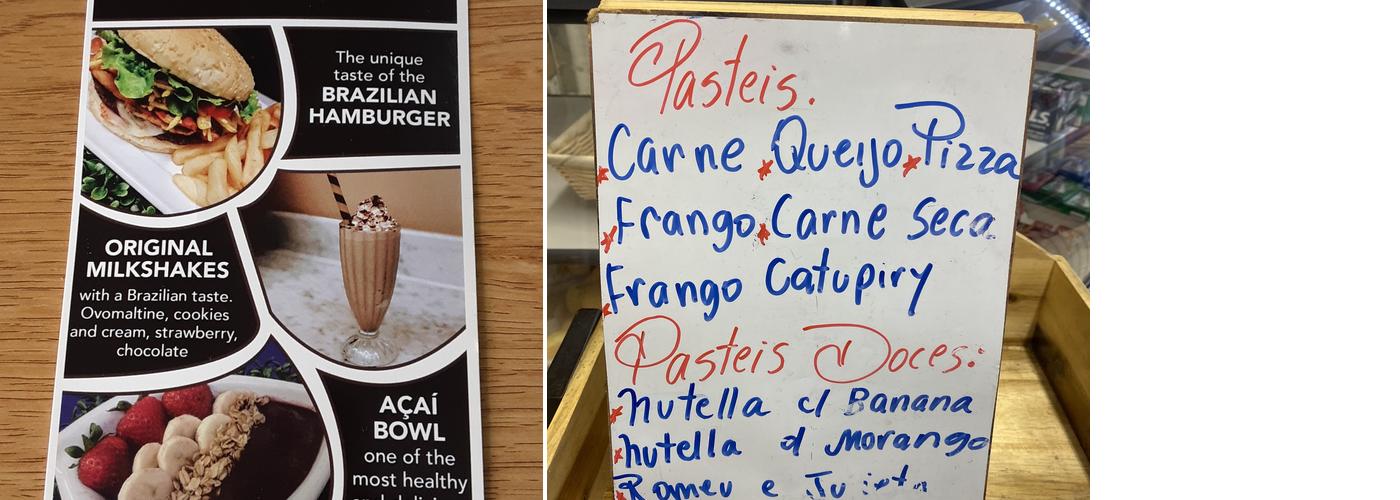 The unique
taste of the
BRAZILIAN
HAMBURGER
ORIGINAL
MILKSHAKES
with a Brazilian taste.
Ovomaltine, cookies
and cream, strawberry,
chocolate
AÇAÍ
BOWL
one of the
most healthy
Pasteis.
Carne Queijo Pizza
Frango Carne Seca
Frango Catupiry
Pasteis Doces:
Nutella c/ Banana
Nutella c/ Morango
Romeu e